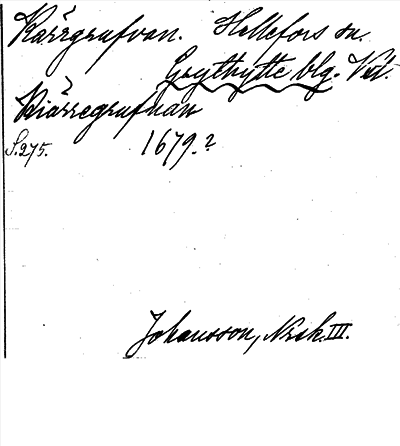 Kärrgrufvan. Hellefors sn.
Grythytte blg. Vstl.
Kiärregrufvan
S.275. 1679.?
Johansson, Norsk. III.